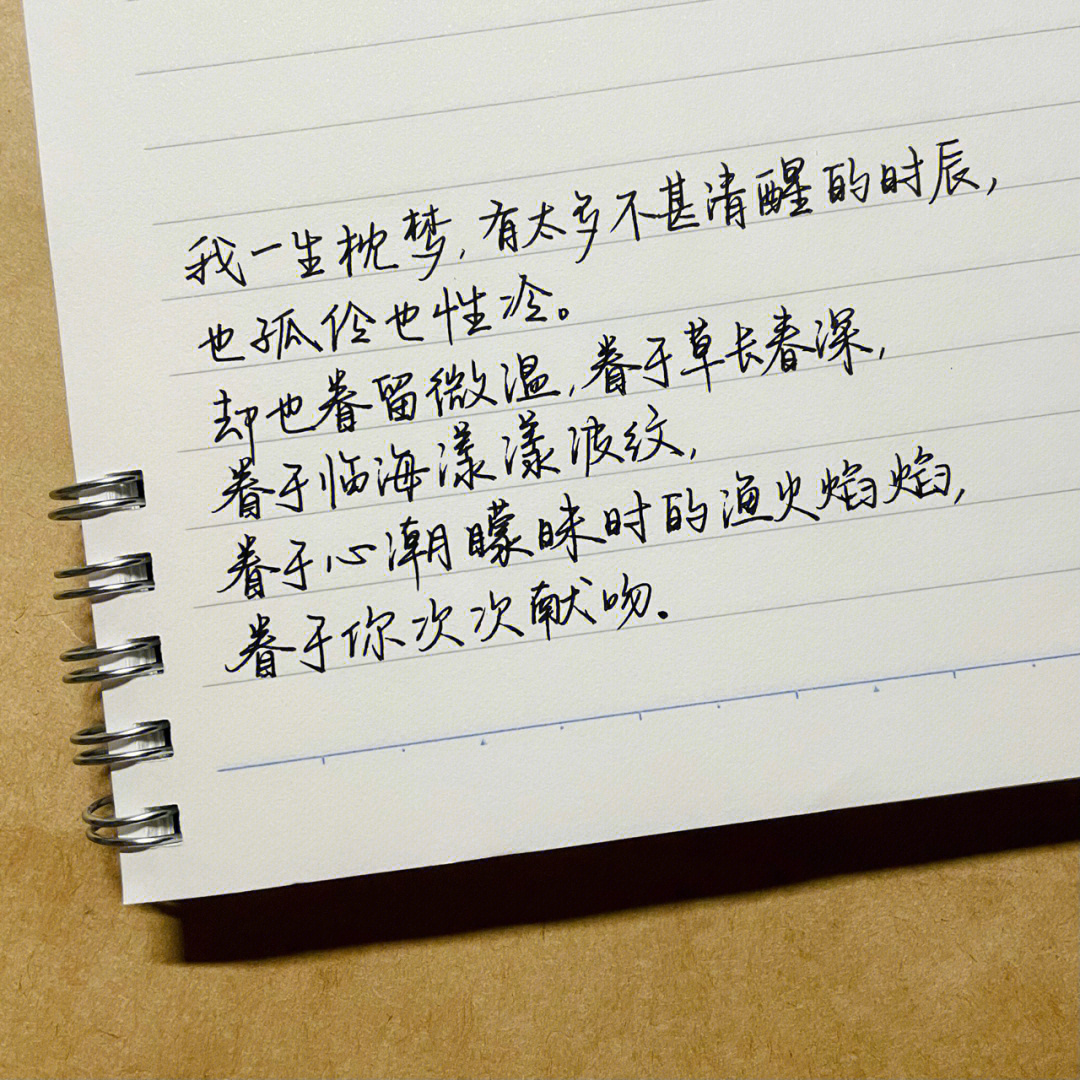 我一生枕梦,有太多不甚清醒的时辰,
也孤伶也性冷。
却也眷留微温,眷于草长春深,
眷于临海漾漾波纹,
眷于心潮曚昧时的渔火焰焰,
眷于你次次献吻.